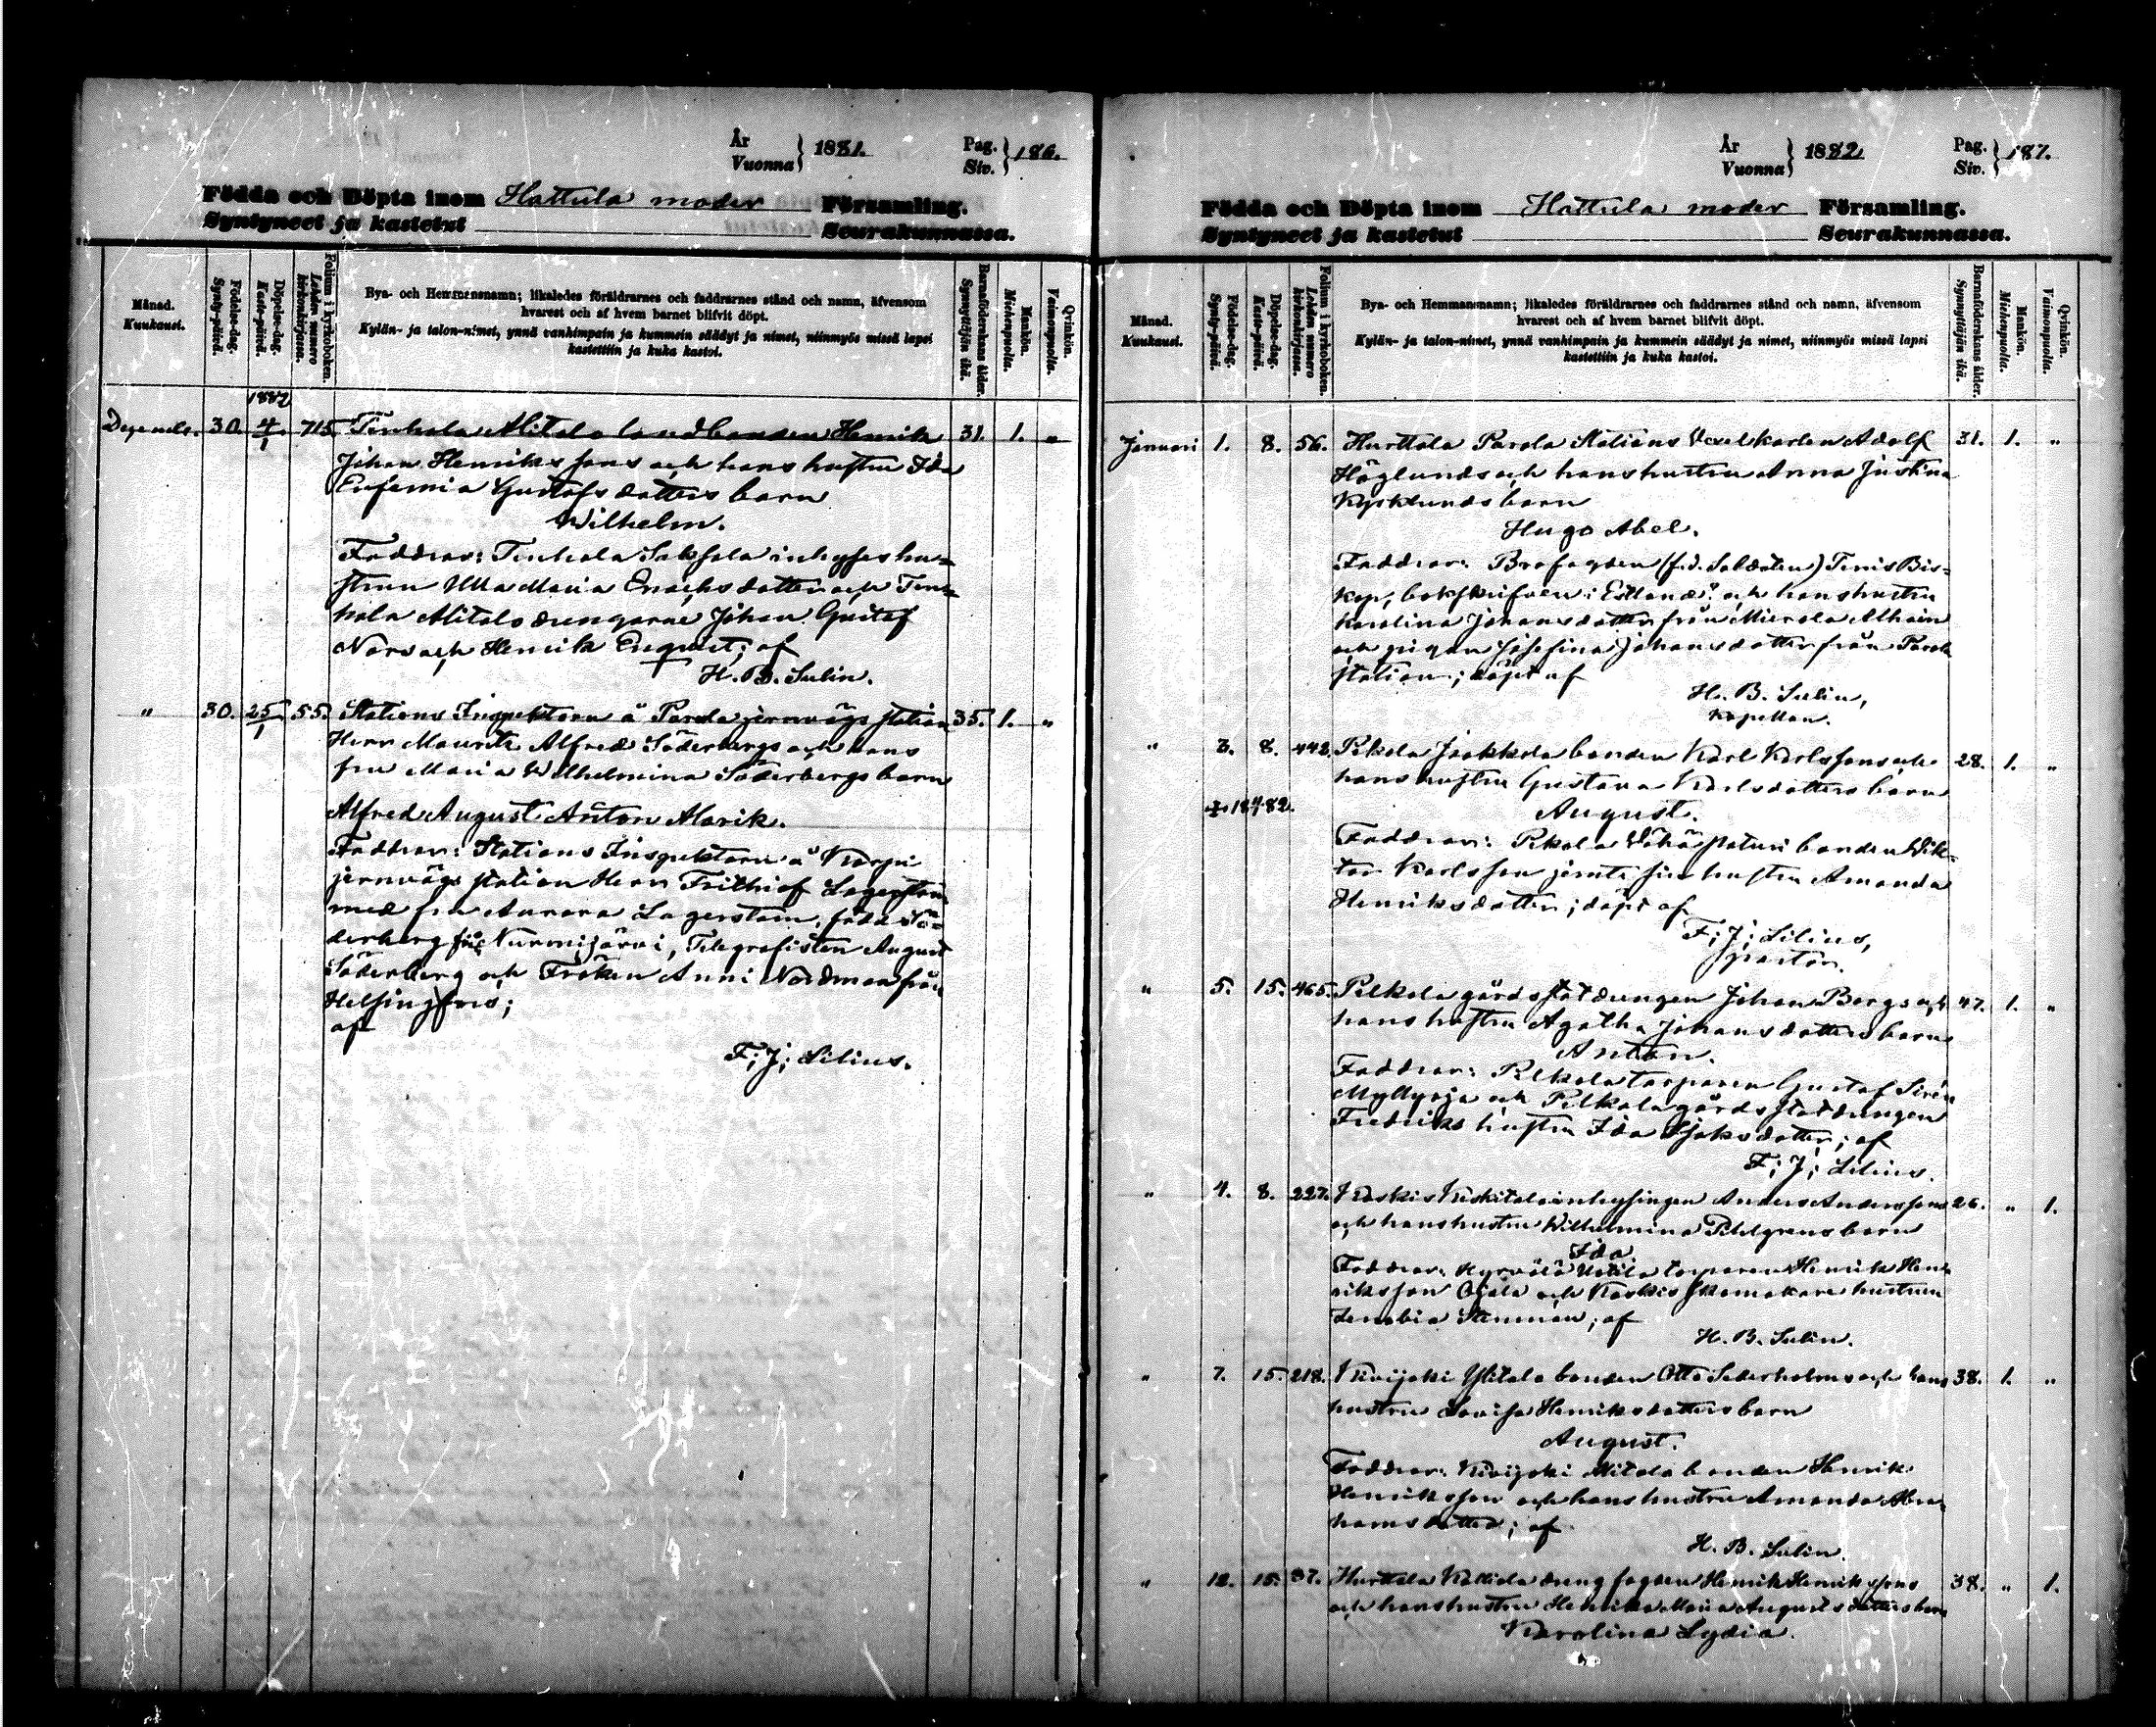 År
Vuonna } 1881.
Pag.
Siv. } 186.
Födda och Döpta inom Hattula moder Församling.
Syntyneet ja kastetut Seurakunnassa.
Månad.
Kuukausi.
Födelse-dag.
Synty-päivä.
Döpelse-dag.
Kaste-päivä.
Folium i kyrkoboken.
Lehden numero kirkonkirjassa.
Bya- och Hemmansnamn; likaledes föräldrarnes och faddrarnes stånd och namn, äfvensom
hvarest och af hvem barnet blifvit döpt.
Kylän- ja talon-nimet, ynnä vanhimpain ja kummein säädyt ja nimet, niinmyös missä lapsi
kastettiin ja kuka kastoi.
Barnaföderskans ålder.
Synnyttäjän ikä.
Mankön.
Miehenpuolta.
Qvinkön.
Vaimonpuolta.
1882
Decemb. 30. 4/1 715. Tenhola Alitalo landbonden Henrik 31. 1. "
Johan Henrikssons och hans hustru Ida
Eufemia Gustafsdotters barn
Wilhelm.
Faddrar: Tenhola Saksala inhyses hu-
strun Ulla Maria dotter och Ten-
hola Alitalo drengarne Johan Gustaf
och Henrik Enqvist; af
H. B. Sulin.
" 30. 25/1 55. Stations Inspektorn å Parola jernvägs station 35. 1. "
Herr Mauritz Alfred Söderbergs och hans
fru Maria Wilhelmina Söderbergs barn
Alfred August Anton Alarik.
Faddrar: Stations Inspektorn å Korpi
jernvägs station Herr Frithiof Lagerstam
med fru Aurora Lagerstam, född Sö-
derberg från Nurmijärvi, Telegrafisten August
Söderberg och Fröken Anni Nordman från
Helsingfors;
af
F; J; Lilius.
År
Vuonna } 1882
Pag.
Siv. } 187.
Födda och Döpta inom Hattula moder Församling.
Syntyneet ja kastetut Seurakunnassa.
Månad.
Kuukausi.
Födelse-dag.
Synty-päivä.
Döpelse-dag.
Kaste-päivä.
Folium i kyrkoboken.
Lehden numero kirkonkirjassa.
Bya- och Hemmansnamn; likaledes föräldrarnes och faddrarnes stånd och namn, äfvensom
hvarest och af hvem barnet blifvit döpt.
Kylän- ja talon-nimet, ynnä vanhimpain ja kummein säädyt ja nimet, niinmyös missä lapsi
kastettiin ja kuka kastoi.
Barnaföderskans ålder.
Synnyttäjän ikä.
Mankön.
Miehenpuolta.
Qvinkön.
Vaimonpuolta.
Januari 1. 8. 56. Hurttala Parola Stations Vexelkarlen Adolf 31. 1. "
Höglunds och hans hustru Anna Justina
barn
Hugo Abel.
Faddrar: (f.d. Soldaten) Bis-
kop, bokskrifven i Estland och hans hustru
Karolina Johansdotter från Mierola Alhain
och pigan Josefina Johansdotter från Parola
station; döpt af
H. B. Sulin,
Kapellan.
" 3. 8. 442. Pekola Jaakkola bonden Karl Karlssons och 28. 1. "
hans hustru Gustava Karlsdotters barn
August.
Faddrar: Pekola Vähä bonden Vik-
tor Karlsson jemte sin hustru Amanda
Henriksdotter; döpt af
F; J; Lilius,
pastor.
" 5. 15. 465. Pelkola gårds statdrengen Johan Bergs och 47. 1. "
hans hustru Agatha Johansdotters barn
Anton.
Faddrar: Pelkola torparen Gustaf Sirén
Myllyoja och Pelkola gårds statdrengen
Fredriks hustru Ida dotter; af
F; J; Lilius.
" 4. 8. 227. inhysingen Anders Anderssons 26. " 1.
och hans hustru Wilhelmina Pihlgrens barn
Ida
Faddrar: Uotila torparen Henrik Hen-
riksson Ojala och skomakare hustrun
Senobia Stenman; af
H. B. Sulin.
" 7. 15. 218. Kivijoki Ylitalo bonden Otto Sederholms och hans 38. 1. "
hustru Lovisa Henriksdotters barn
August.
Faddrar: Kivijoki Alitalo bonden Henrik
Henriksson och hans hustru Amanda Abra-
hamsdotter; af
H. B. Sulin.
" 12. 15. 37. Hurttala drengfogden Henrik Henrikssons 38. " 1.
och hans hustru Henrika Maria Augustsdotters barn
Karolina Lydia.